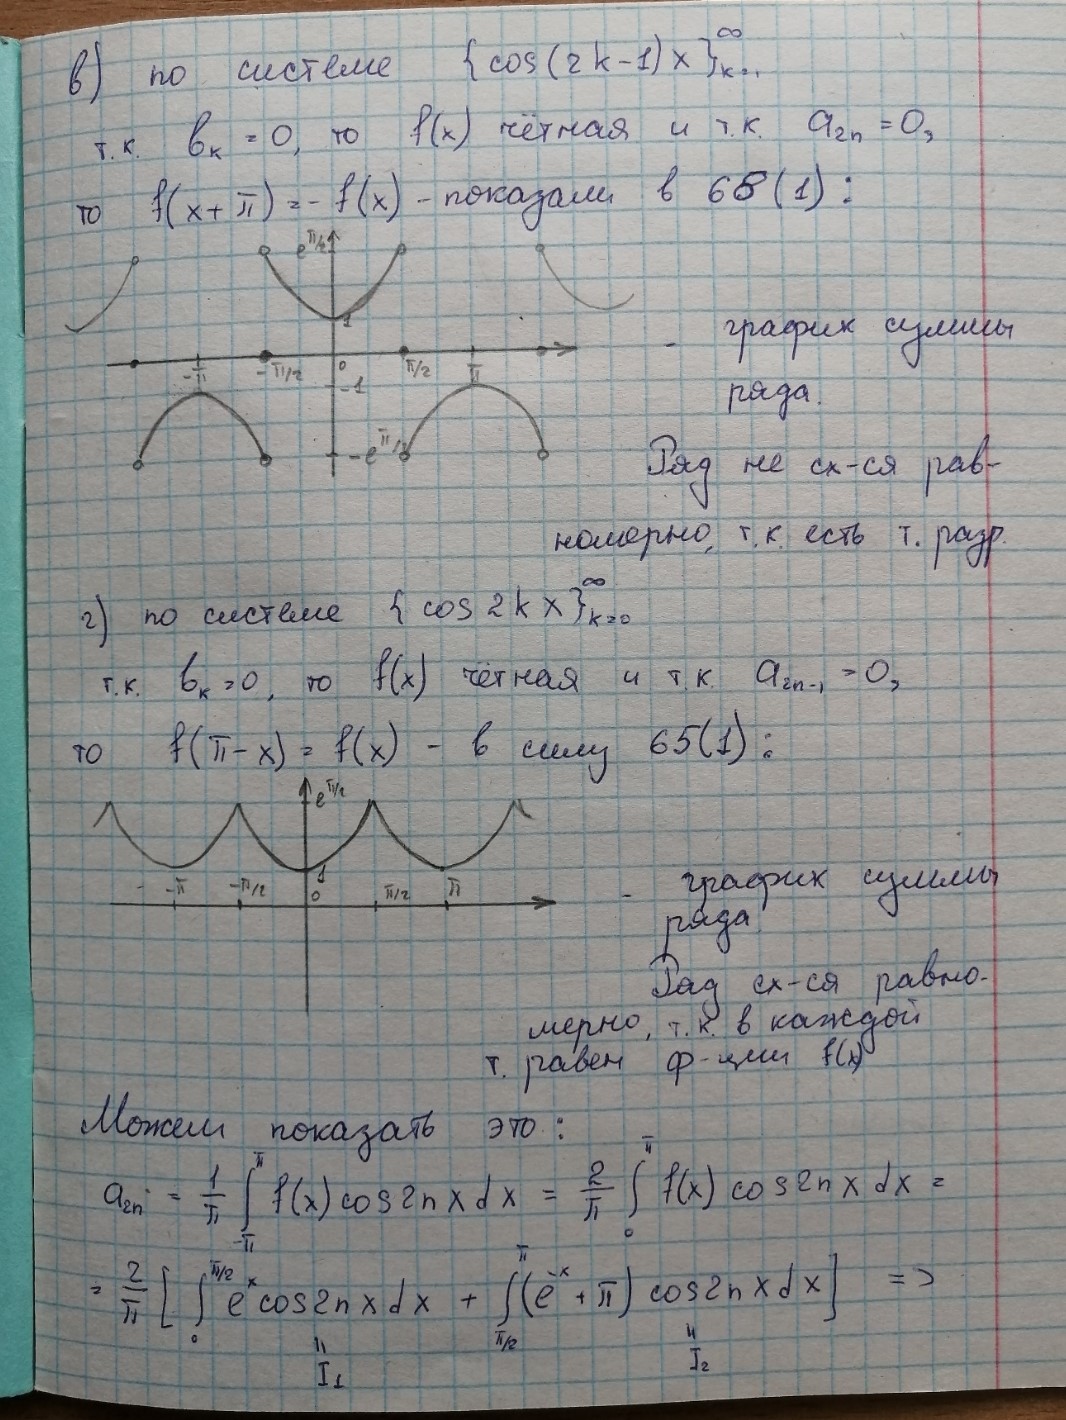 в) по системе {cos(2k-1)x}_{k=1}^∞
т.к. b_k = 0, то f(x) чётная и т.к. a_{2n} = 0,
то f(x+π) = -f(x) - показали в 65(1):
e^{π/2}
1
-π -π/2 0 π/2 π
-1
-e^{π/2}
- график суммы
ряда.
Ряд не сх-ся рав-
номерно, т.к. есть т. разр.
г) по системе {cos 2k x}_{k=0}^∞
т.к. b_k = 0, то f(x) чётная и т.к. a_{2n-1} = 0,
то f(π-x) = f(x) - в силу 65(1):
e^{π/2}
1
-π -π/2 0 π/2 π
- график суммы
ряда.
Ряд сх-ся равно-
мерно, т.к. в каждой
т. равен ф-ции f(x)
Можем показать это:
a_{2n} = 1/π ∫_{-π}^{π} f(x) cos2nx dx = 2/π ∫_0^π f(x) cos2nx dx =
= 2/π [ ∫_0^{π/2} e^x cos2nx dx + ∫_{π/2}^π (e^{-x} + π) cos2nx dx ] =>
= I_1 = I_2